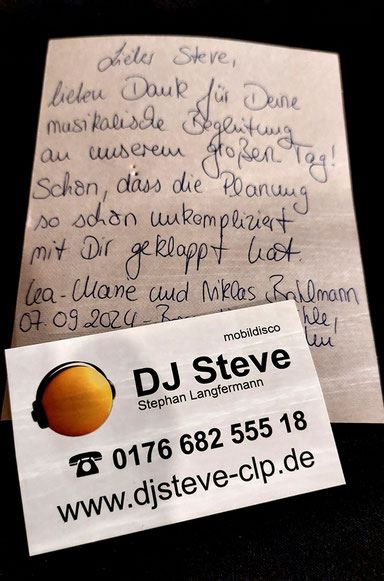 Lieber Steve,
lieben Dank für Deine
musikalische Begleitung
an unserem großen Tag!
Schön, dass die Planung
so schön unkompliziert
mit Dir geklappt hat.
Lea-Marie und Niklas Bahlmann
07.09.2024 -
mobildisco
DJ Steve
Stephan Langfermann
☎ 0176 682 555 18
www.djsteve-clp.de